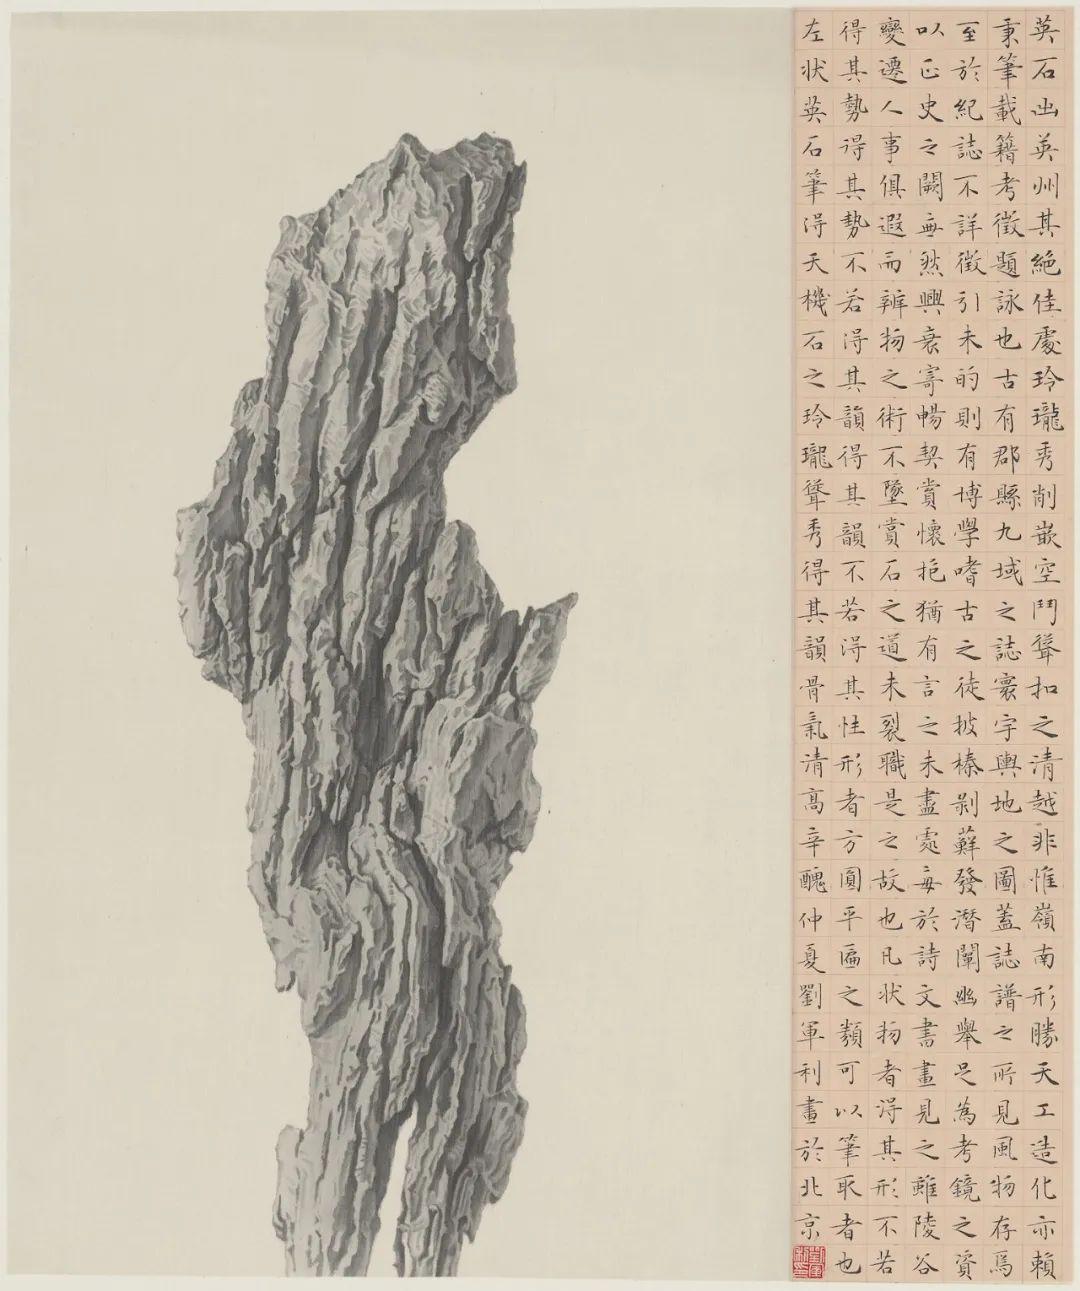 英石出英州其絕佳處玲瓏秀削嵌空鬥聳扣之清越非惟嶺南形勝天工造化亦賴
秉筆載籍考徵題詠也古有郡縣九域之誌寰宇輿地之圖蓋誌譜之所見風物存焉
至於紀誌不詳徵引未的則有博學嗜古之徒披榛剝蘚發潛闡幽舉是為考鏡之資
以正史之闕無然興衰寄暢契賞懷抱猶有言之未盡處每於詩文書畫見之雖陵谷
變遷人事俱遐而辨物之術不墜賞石之道未裂職是之故也凡狀物者得其形不若
得其勢得其勢不若得其韻得其韻不若得其性形者方圓平匾之類可以筆取者也
左狀英石筆得天機石之玲瓏聳秀得其韻骨氣清高辛醜仲夏劉軍利畫於北京